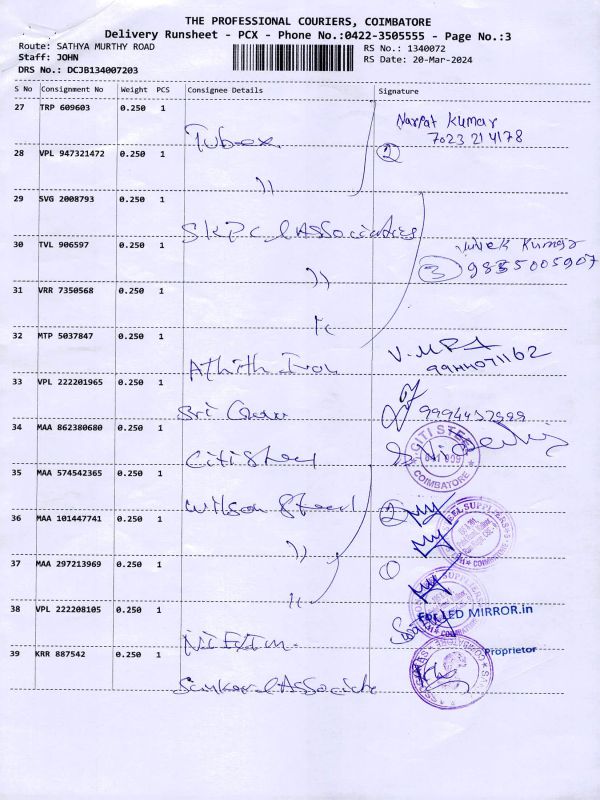 THE PROFESSIONAL COURIERS, COIMBATORE
Delivery Runsheet - PCX - Phone No.:0422-3505555 - Page No.:3
Route: SATHYA MURTHY ROAD
RS No.: 1340072
Staff: JOHN
RS Date: 20-Mar-2024
DRS No.: DCJB134007203
S No Consignment No Weight PCS Consignee Details Signature
27 TRP 609603 0.250 1
Narpat Kumar
7023214178
Tubex
28 VPL 947321472 0.250 1
2
"
29 SVG 2008793 0.250 1
SKPC Associates
30 TVL 906597 0.250 1
Vivek Kumar
3 9835005907
"
31 VRR 7350568 0.250 1
"
32 MTP 5037847 0.250 1
Athith Iron
9944071162
33 VPL 222201965 0.250 1
Sri
34 MAA 862380680 0.250 1
Citi Steel
CITI STEEL
COIMBATORE
35 MAA 574542365 0.250 1
Wilson Steel
2
36 MAA 101447741 0.250 1
"
COIMBATORE
37 MAA 297213969 0.250 1
"
38 VPL 222208105 0.250 1
For LED MIRROR.in
Proprietor
39 KRR 887542 0.250 1
Associate